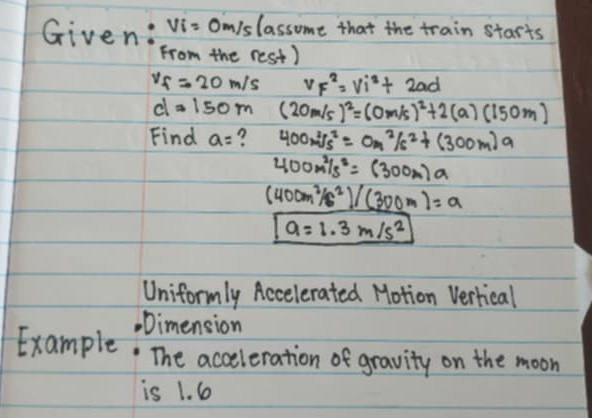 Given: Vi = 0m/s (assume that the train starts
from the rest)
Vf = 20 m/s VF² = Vi² + 2ad
d = 150m (20m/s)² = (0m/s)² + 2(a) (150m)
Find a = ? 400m²/s² = 0m²/s² + (300m)a
400m²/s² = (300m)a
(400m²/s²)/(300m) = a
a = 1.3 m/s²
Uniformly Accelerated Motion Vertical
Dimension
Example : The acceleration of gravity on the moon
is 1.6